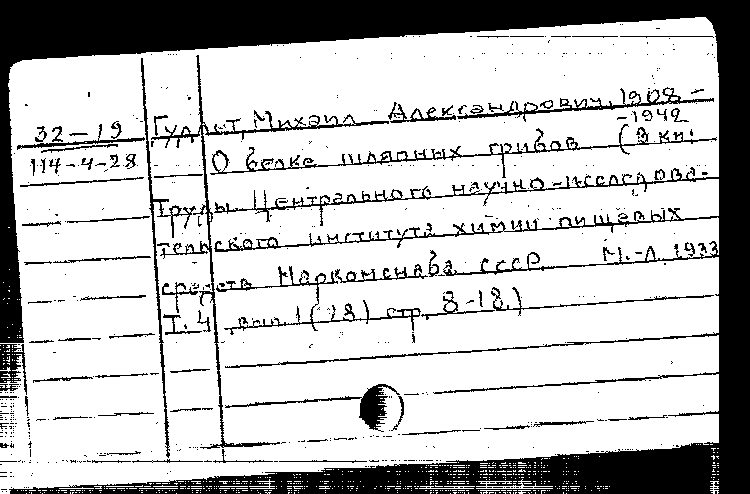 32-19
114-4-28
Михаил Александрович, 1908-
-1942
О белке шляпных грибов (В кн:
Труды Центрального научно-исследова-
тельского института химии пищевых
средств Наркомснаба СССР. М.-Л. 1933
Т. 4, вып. 1 (28) стр. 8-18.)